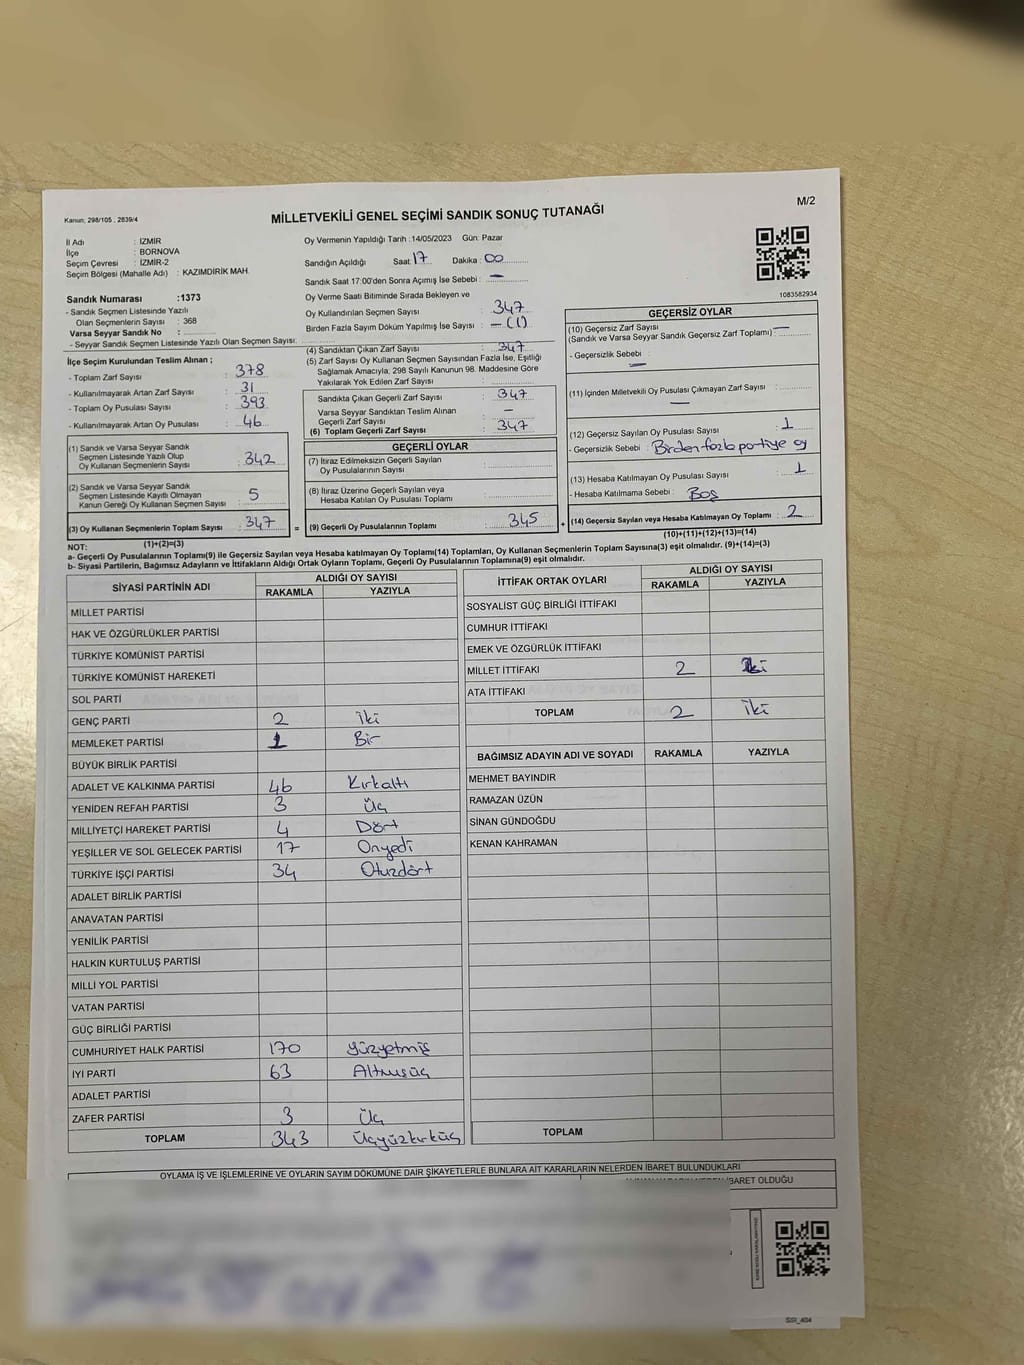 M/2
Kanun, 298/105 , 2839/4
MİLLETVEKİLİ GENEL SEÇİMİ SANDIK SONUÇ TUTANAĞI
İl Adı : İZMİR
İlçe : BORNOVA
Seçim Çevresi : İZMİR-2
Seçim Bölgesi (Mahalle Adı) : KAZIMDİRİK MAH.
Sandık Numarası :1373
- Sandık Seçmen Listesinde Yazılı
Olan Seçmenlerin Sayısı : 368
Varsa Seyyar Sandık No :
- Seyyar Sandık Seçmen Listesinde Yazılı Olan Seçmen Sayısı:
İlçe Seçim Kurulundan Teslim Alınan ;
- Toplam Zarf Sayısı : 378
- Kullanılmayarak Artan Zarf Sayısı : 31
- Toplam Oy Pusulası Sayısı : 393
- Kullanılmayarak Artan Oy Pusulası : 46
(1) Sandık ve Varsa Seyyar Sandık
Seçmen Listesinde Yazılı Olup
Oy Kullanan Seçmenlerin Sayısı : 342
(2) Sandık ve Varsa Seyyar Sandık
Seçmen Listesinde Kayıtlı Olmayan
Kanun Gereği Oy Kullanan Seçmen Sayısı : 5
(3) Oy Kullanan Seçmenlerin Toplam Sayısı : 347 =
(1)+(2)=(3)
Oy Vermenin Yapıldığı Tarih :14/05/2023 Gün: Pazar
Sandığın Açıldığı Saat 17 Dakika: 00
Sandık Saat 17:00'den Sonra Açımış İse Sebebi : —
Oy Verme Saati Bitiminde Sırada Bekleyen ve
Oy Kullandırılan Seçmen Sayısı : 347
Birden Fazla Sayım Döküm Yapılmış İse Sayısı : — (1)
(4) Sandıktan Çıkan Zarf Sayısı : 347
(5) Zarf Sayısı Oy Kullanan Seçmen Sayısından Fazla İse, Eşitliği
Sağlamak Amacıyla, 298 Sayılı Kanunun 98. Maddesine Göre
Yakılarak Yok Edilen Zarf Sayısı :
Sandıkta Çıkan Geçerli Zarf Sayısı : 347
Varsa Seyyar Sandıktan Teslim Alınan
Geçerli Zarf Sayısı : —
(6) Toplam Geçerli Zarf Sayısı : 347
GEÇERLİ OYLAR
(7) İtiraz Edilmeksizin Geçerli Sayılan
Oy Pusulalarının Sayısı :
(8) İtiraz Üzerine Geçerli Sayılan veya
Hesaba Katılan Oy Pusulası Toplamı :
(9) Geçerli Oy Pusulalarının Toplamı : 345 +
1083582934
GEÇERSİZ OYLAR
(10) Geçersiz Zarf Sayısı : —
(Sandık ve Varsa Seyyar Sandık Geçersiz Zarf Toplamı)
- Geçersizlik Sebebi :
—
(11) İçinden Milletvekili Oy Pusulası Çıkmayan Zarf Sayısı :
—
(12) Geçersiz Sayılan Oy Pusulası Sayısı : 1
- Geçersizlik Sebebi : Birden fazla partiye oy
(13) Hesaba Katılmayan Oy Pusulası Sayısı : 1
- Hesaba Katılmama Sebebi : Boş
(14) Geçersiz Sayılan veya Hesaba Katılmayan Oy Toplamı : 2
(10)+(11)+(12)+(13)=(14)
NOT:
a- Geçerli Oy Pusulalarının Toplamı(9) ile Geçersiz Sayılan veya Hesaba katılmayan Oy Toplamı(14) Toplamları, Oy Kullanan Seçmenlerin Toplam Sayısına(3) eşit olmalıdır. (9)+(14)=(3)
b- Siyasi Partilerin, Bağımsız Adayların ve İttifakların Aldığı Oyların Toplamı, Geçerli Oy Pusulalarının Toplamına(9) eşit olmalıdır.
SİYASİ PARTİNİN ADI ALDIĞI OY SAYISI
RAKAMLA YAZIYLA
MİLLET PARTİSİ
HAK VE ÖZGÜRLÜKLER PARTİSİ
TÜRKİYE KOMÜNİST PARTİSİ
TÜRKİYE KOMÜNİST HAREKETİ
SOL PARTİ
GENÇ PARTİ 2 İki
MEMLEKET PARTİSİ 1 Bir
BÜYÜK BİRLİK PARTİSİ
ADALET VE KALKINMA PARTİSİ 46 Kırkaltı
YENİDEN REFAH PARTİSİ 3 Üç
MİLLİYETÇİ HAREKET PARTİSİ 4 Dört
YEŞİLLER VE SOL GELECEK PARTİSİ 17 Onyedi
TÜRKİYE İŞÇİ PARTİSİ 34 Otuzdört
ADALET BİRLİK PARTİSİ
ANAVATAN PARTİSİ
YENİLİK PARTİSİ
HALKIN KURTULUŞ PARTİSİ
MİLLİ YOL PARTİSİ
VATAN PARTİSİ
GÜÇ BİRLİĞİ PARTİSİ
CUMHURİYET HALK PARTİSİ 170 Yüzyetmiş
İYİ PARTİ 63 Altmışüç
ADALET PARTİSİ
ZAFER PARTİSİ 3 Üç
TOPLAM 343 Üçyüzkırküç
İTTİFAK ORTAK OYLARI ALDIĞI OY SAYISI
RAKAMLA YAZIYLA
SOSYALİST GÜÇ BİRLİĞİ İTTİFAKI
CUMHUR İTTİFAKI
EMEK VE ÖZGÜRLÜK İTTİFAKI
MİLLET İTTİFAKI 2 İki
ATA İTTİFAKI
TOPLAM 2 İki
BAĞIMSIZ ADAYIN ADI VE SOYADI RAKAMLA YAZIYLA
MEHMET BAYINDIR
RAMAZAN ÜZÜN
SİNAN GÜNDOĞDU
KENAN KAHRAMAN
TOPLAM
OYLAMA İŞ VE İŞLEMLERİNE VE OYLARIN SAYIM DÖKÜMÜNE DAİR ŞİKAYETLERLE BUNLARA AİT KARARLARIN NELERDEN İBARET BULUNDUKLARI
İBARET OLDUĞU
SSI_404